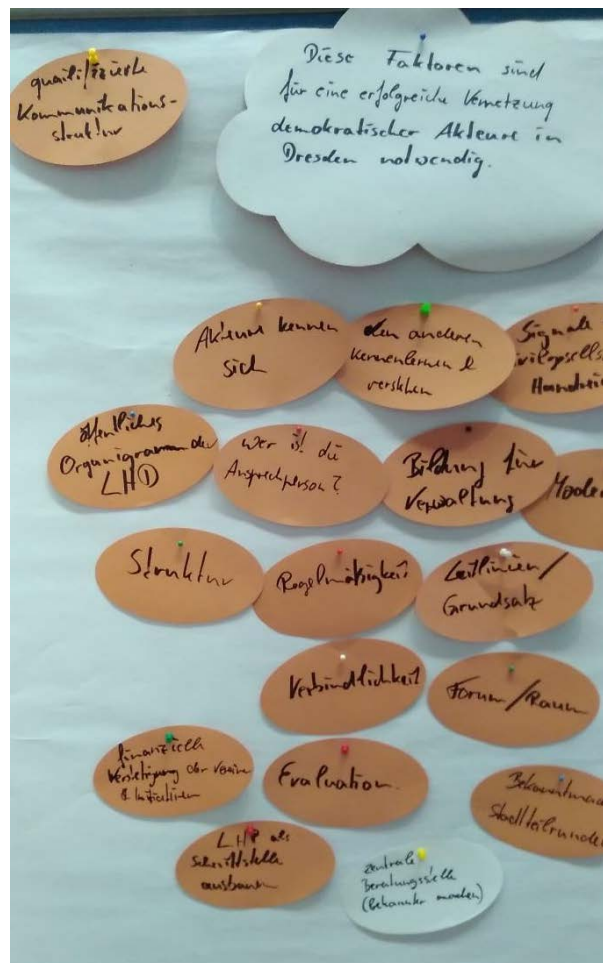 qualifizierte
Kommunikations-
struktur
Diese Faktoren sind
für eine erfolgreiche Vernetzung
demokratischer Akteure in
Dresden notwendig.
Akteure kennen
sich
den anderen
kennenlernen &
verstehen
Signale
öffentliches
Organigramm der
LHD
Wer ist die
Ansprechperson?
Bildung für
Verwaltung
Moder
Struktur
Regelmäßigkeit
Leitlinien/
Grundsatz
Verbindlichkeit
Forum/Raum
finanzielle
Verstetigung der Vereine
& Initiativen
Evaluation
Stadtteilrunden
LHD als
Schnittstelle
ausbauen
zentrale
Beratungsstelle
(Bekannter machen)